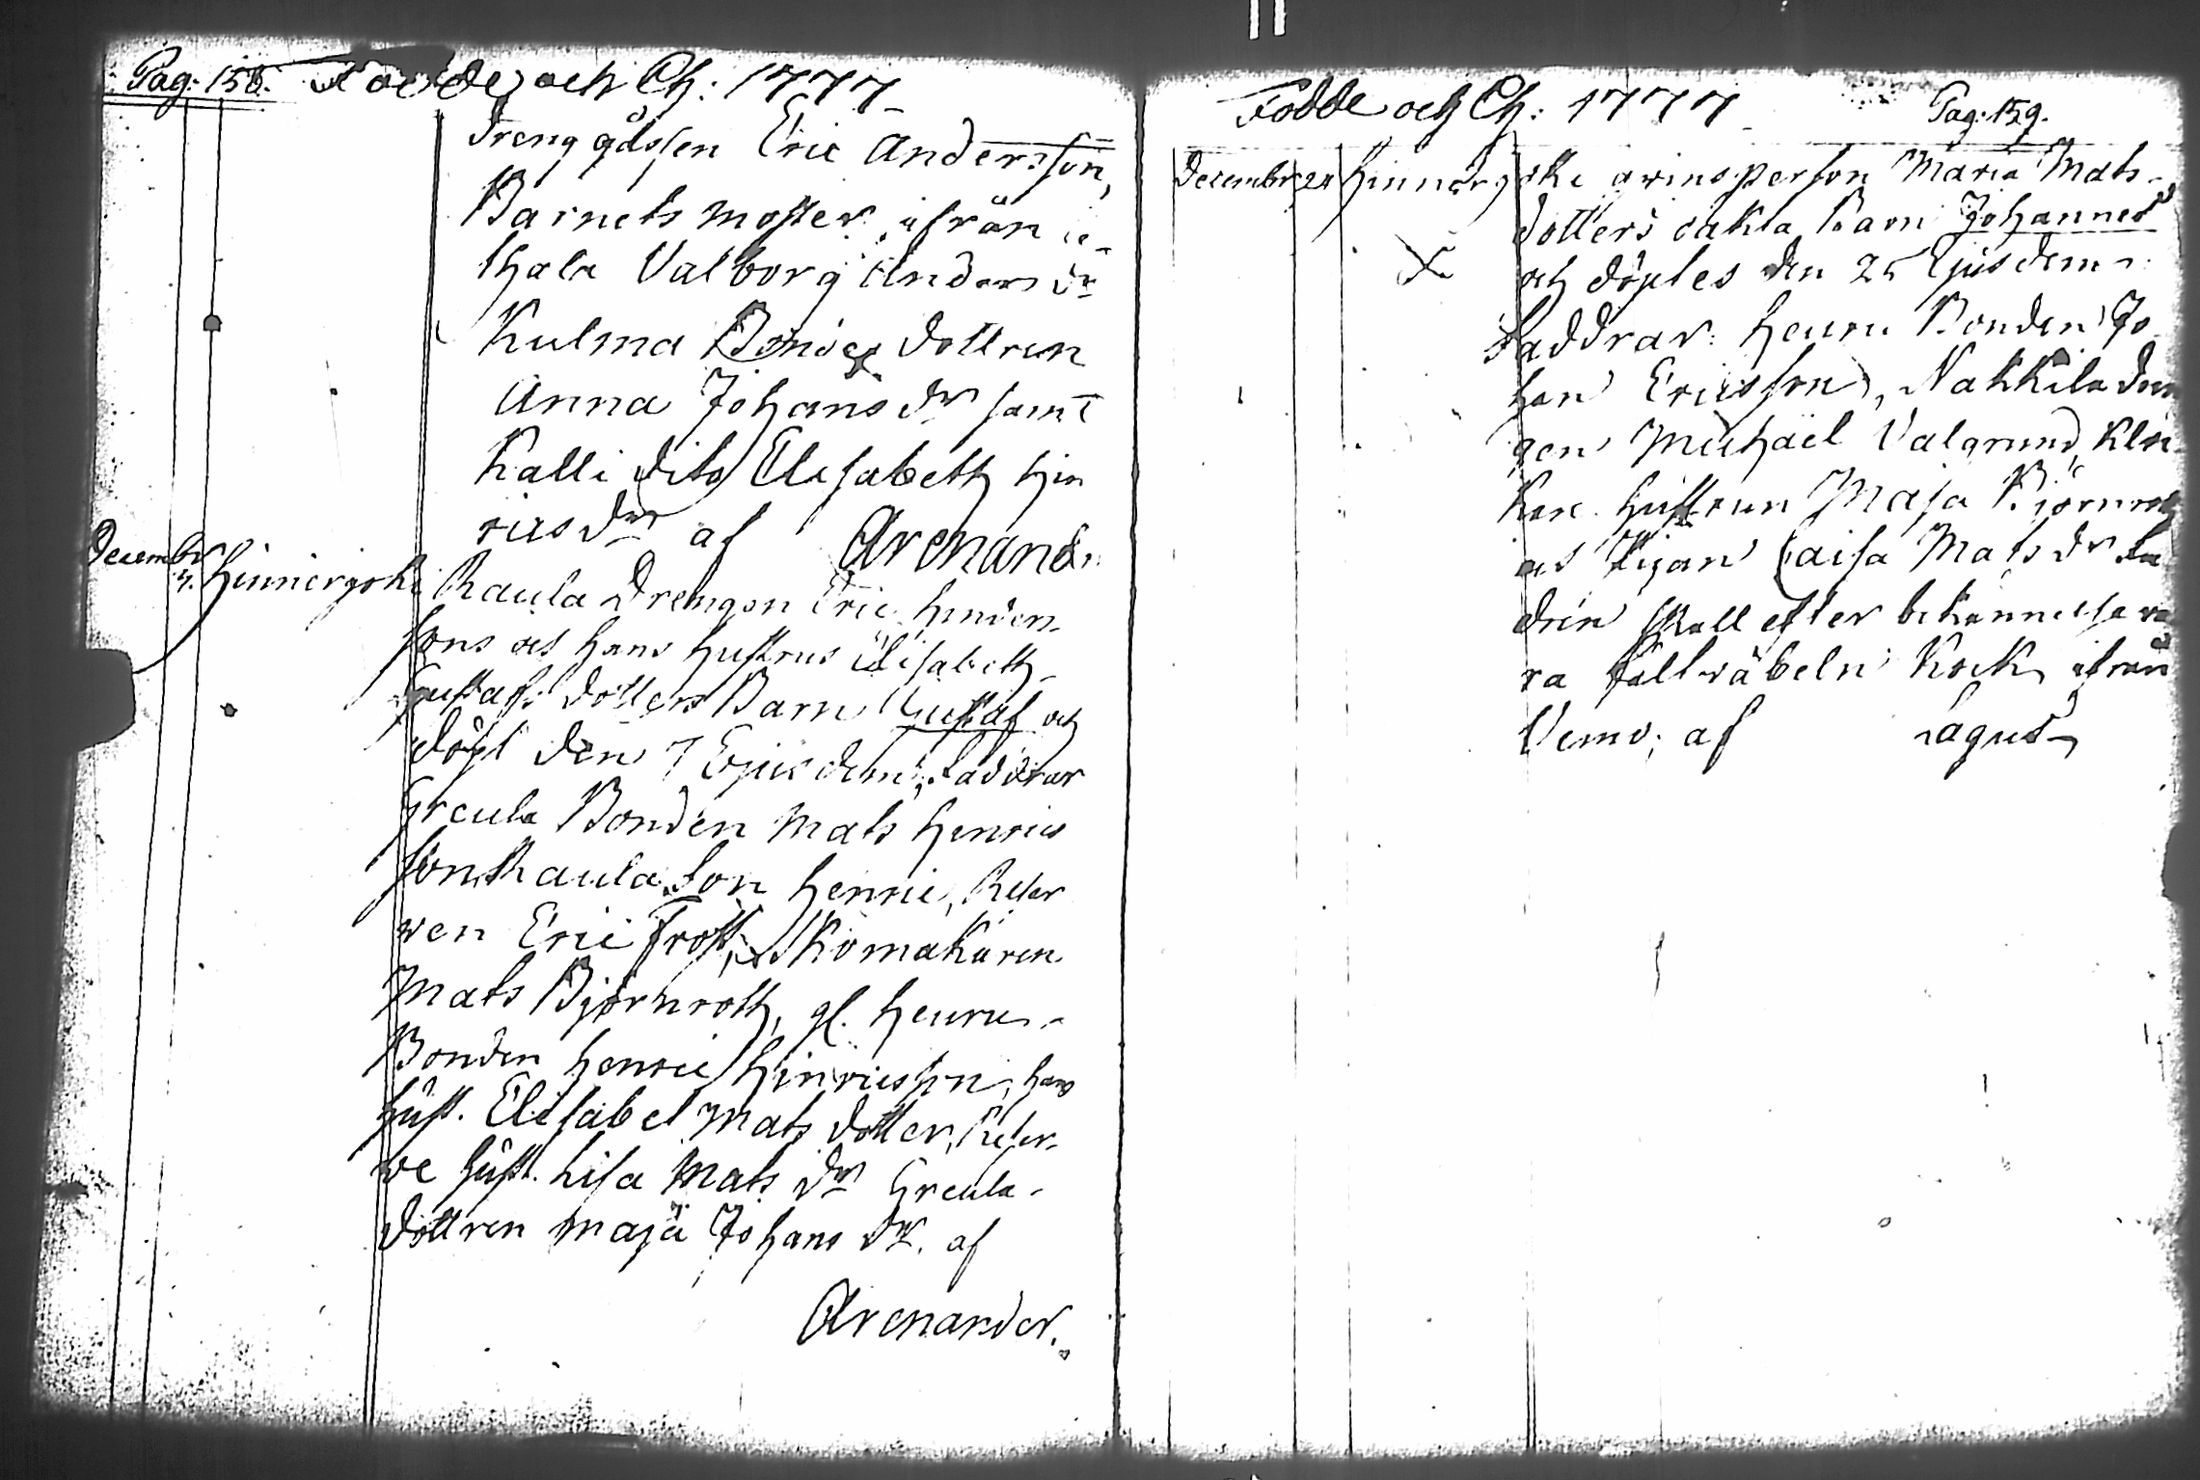 Pag: 158. Födde och Ch: 1777
Drengg̊åssen Eric Andersson,
Barnets moster ifrån i-
thala Valborg Anders dr
Kulma Bonde dottren
Anna Johans dr samt
Kalli dito Elisabeth Hin
rics dr af Arenander
Decembr 4. Hinneriojoki Raula Drengen Eric Henders-
sons och hans hustrus Elisabeth
Gustafs dotters Barn Gustaf och
döpt den 7 Ejusdem, Faddrar
Greula Bonden Mats Henrics
son, Raula Son Henric, Reser
ven Eric Frost, Skomakaren
Mats Björnroth, gl. Heuru-
Bonden Henric Hinricsson, hans
hust. Elisabet Mats dotter, Reser-
ve hust. Lisa Mats dr Greula-
dottren Maja Johans dr. af
Arenander.
Födde och Ch: 1777 Pag: 159.
Decembr 21 Hinnerjoki qvinsperson Maria Mats-
dotters oäkta Barn Johannes
och döptes den 25 Ejusdem
Faddrar: Heuru Bonden Jo-
han Ericsson, Nakkila Dren
gen Michaël Valgrund, Kloc
kare hustrun Maja Björnroth
och Pigan Caisa Mats dr Fa
dren skall efter bekännelse va
ra Fältväbeln Kock ifrån
Vemo; af Lagus